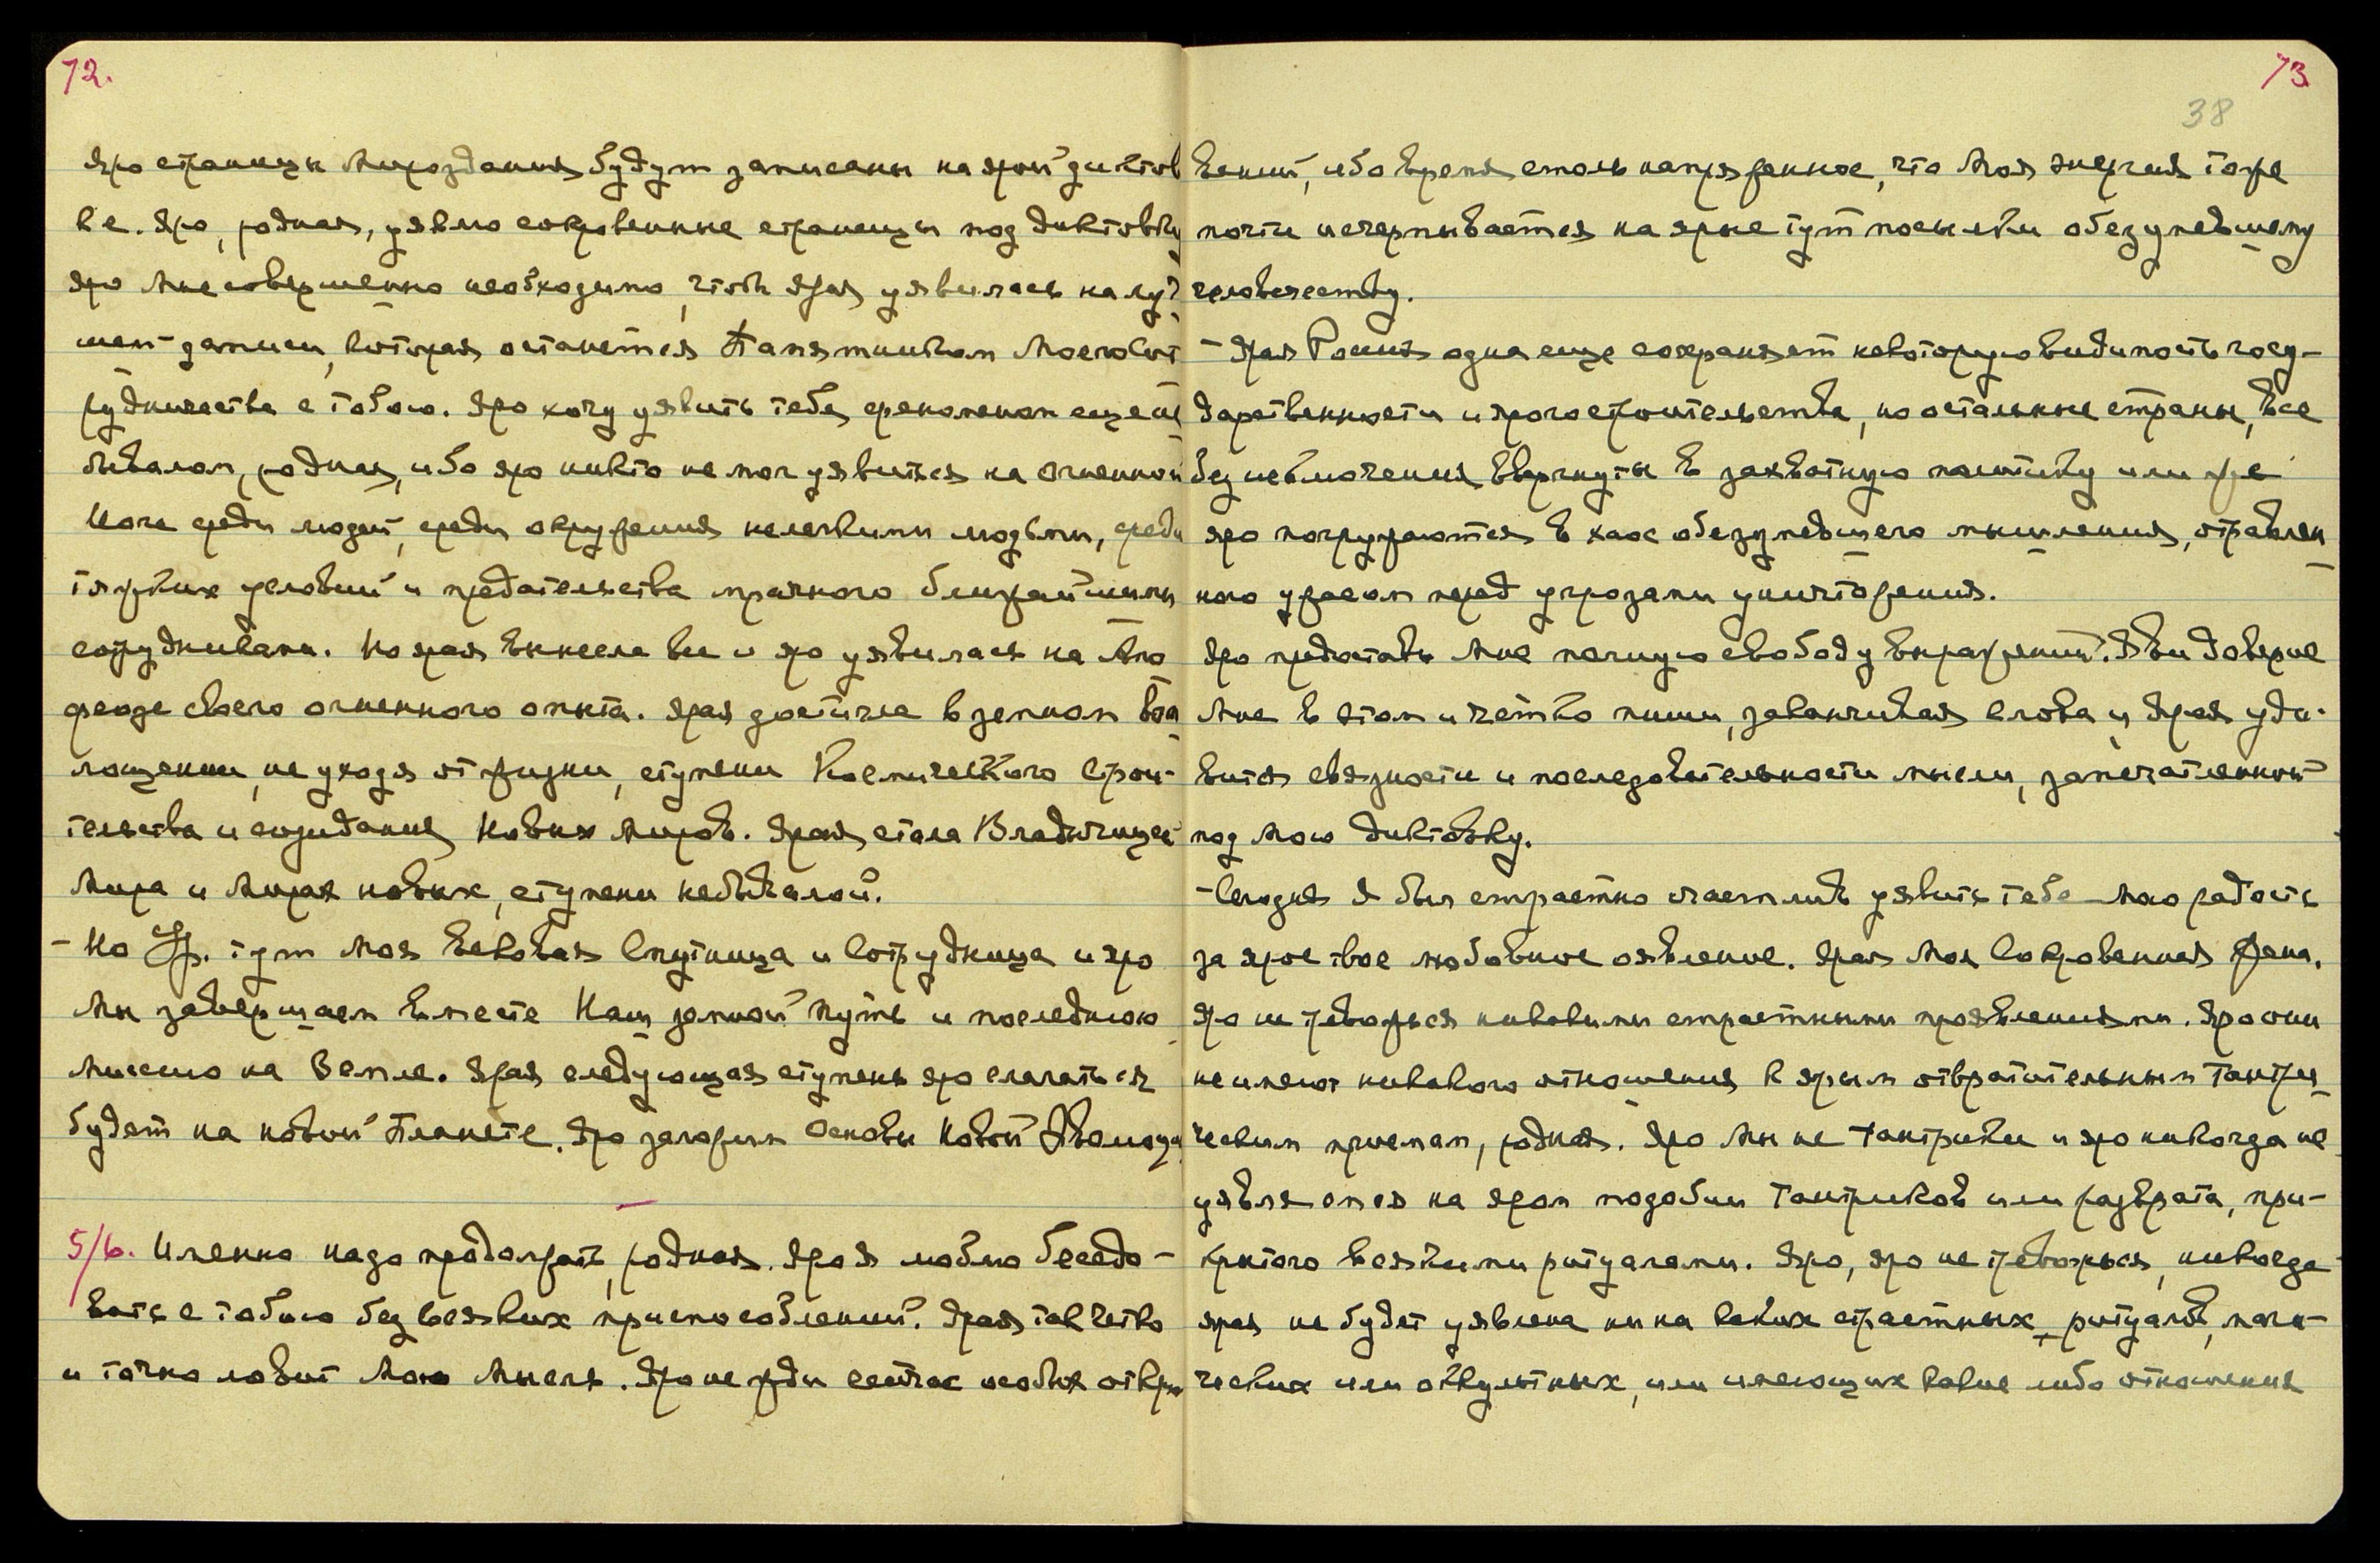 72.
Яро страницы Мироздания будут записаны на ярой диктов
ке. Яро, родная, уявлю сокровенные страницы под диктовку
Яро Мне совершенно необходимо, чтобы Ярая уявилась на луч
шей записи, которая останется Памятником Моего сот
рудничества с тобою. Яро хочу уявить тебя феноменом еще не
бывалом, родная, ибо яро никто не мог уявиться на огненной
Йоге среди людей, среди окружения нелегкими людьми, среди
тяжких условий и предательства мрачного ближайшими
сотрудниками. Но ярая вынесла все и яро уявилась на Апо
феозе своего огненного опыта. Ярая достигла в земном воп
лощении, не уходя от жизни, ступени Космического Строи-
тельства и созидания Новых Миров. Ярая стала Владычицей
Мира и Миров новых, ступени небывалой.
- Но Ур. тут Моя Вековая Спутница и Сотрудница и яро
Мы завершаем вместе Наш земной Путь и последнюю
Миссию на Земле. Ярая следующая ступень яро слагаться
будет на новой Планете. Яро заложим Основы Новой Эволюции
5/6. Именно надо продолжать, родная. Яро я люблю беседо-
вать с тобою без всяких приспособлений. Ярая так четко
и точно ловит Мою Мысль. Яро не жди сейчас особых откро
73
38
вений, ибо время столь напряженное, что Моя энергия тоже
почти исчерпывается на ярые тут посылки обезумевшему
человечеству.
- Ярая Россия одна еще сохраняет некоторую видимость госу-
дарственности и ярого строительства, но остальные страны, все
без исключения, ввергнуты в захватную политику или же
яро погружаются в хаос обезумевшего мышления, отравлен
ного ужасом перед угрозами уничтожения.
Яро предоставь Мне полную свободу выражений. Яви доверие
Мне в этом и четко пиши, заканчивая слова, и Ярая уди-
вится связности и последовательности мысли, запечатленной
под Мою диктовку.
- Сегодня Я был страстно счастлив уявить тебе Мою радость
за ярое твое любовное оявление. Ярая Моя Сокровенная Жена,
Яро не тревожься никакими страстными проявлениями. Яро они
не имеют никакого отношения к ярым отвратительным Тантри
ческим приемам, родная. Яро Мы не тантрики и яро никогда не
уявляемся на яром подобии Тантриков или разврата, при-
крытого всякими ритуалами. Яро, яро не тревожься, никогда
ярая не будет уявлена ни на каких страстных ритуалах, маги-
ческих или оккультных, или имеющих какие либо отношения